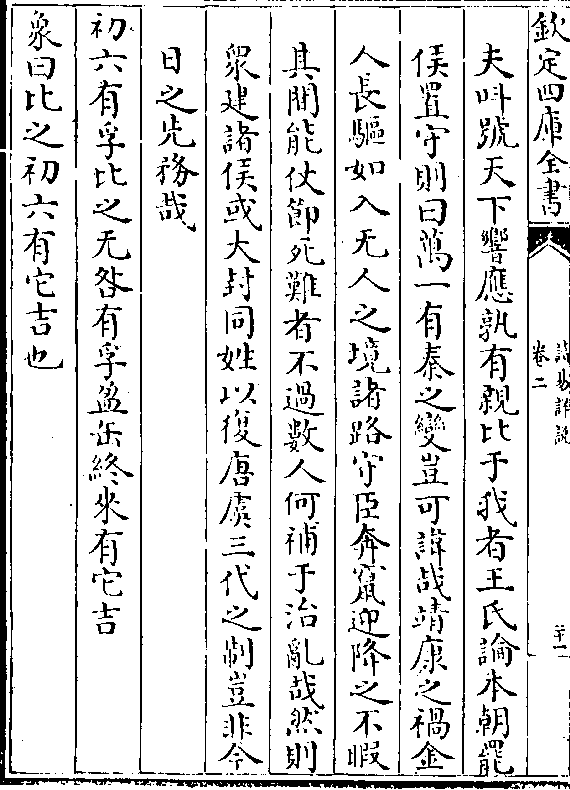 欽定四庫全書
讀易詳説
卷二
二十一
夫叫號天下響應孰有親比于我者王氏論本朝罷
侯置守則曰萬一有秦之變豈可諱哉靖康之禍金
人長驅如入无人之境諸路守臣奔竄迎降之不暇
其間能仗節死難者不過數人何補于治亂哉然則
衆建諸侯或大封同姓以復唐虞三代之制豈非今
日之先務哉
初六有孚比之无咎有孚盈缶終來有它吉
象曰比之初六有它吉也